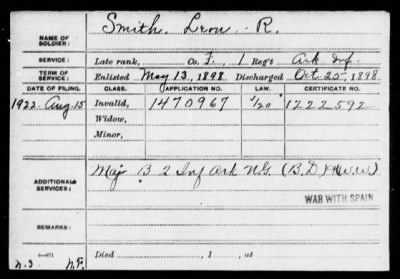 NAME OF SOLDIER: Smith, Leon R.
SERVICE: Late rank, Co. F, 1 Reg't Ark Inf.
TERM OF SERVICE: Enlisted May 13, 1898 Discharged Oct. 25, 1898
DATE OF FILING. CLASS. APPLICATION NO. LAW. CERTIFICATE NO.
1922 Aug. 15 Invalid, 1470967 6/20 1222592
Widow,
Minor,
ADDITIONAL SERVICES: Maj B 2 Inf Ark N.G. (B.D.) (W.W.)
WAR WITH SPAIN
REMARKS:
Died , 1 , at